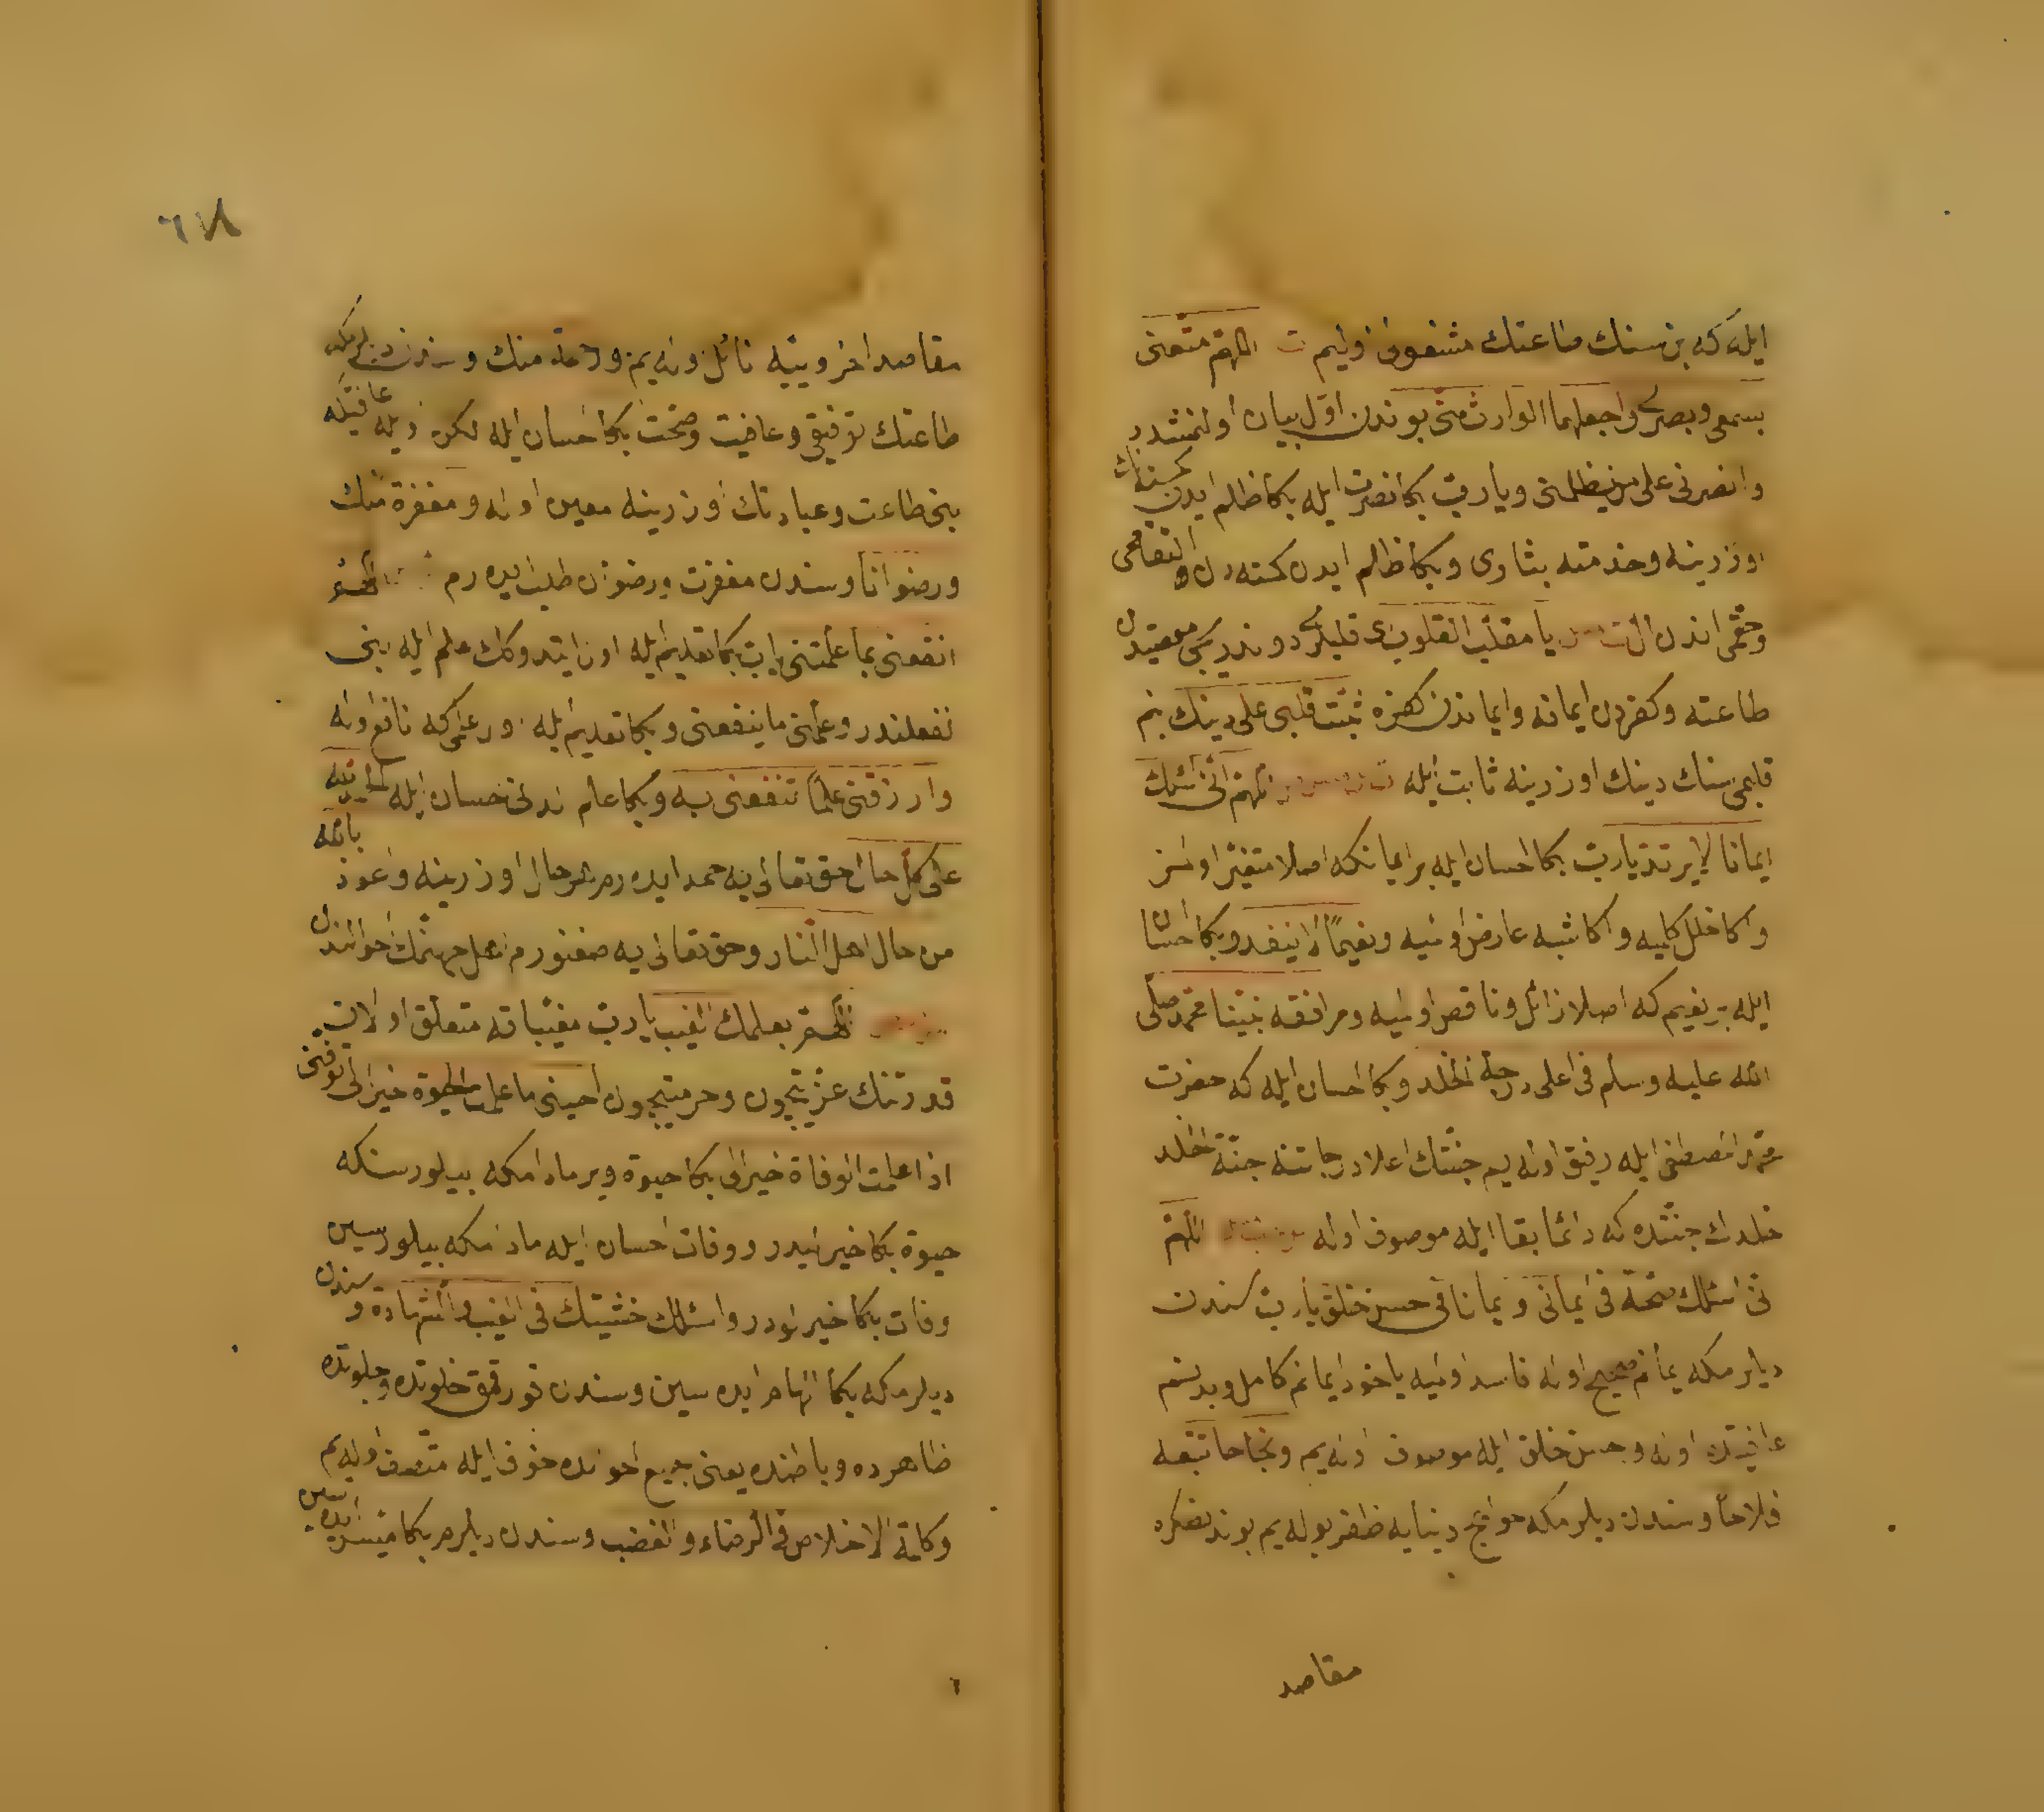 ايله كه بن سنك طاعتك مشغون اوليم ت اللهم متعنى
بسمعى وبصرى واجعلهما الوارث منى بوندن اول بيان اولنمشدر
وانصرنى على من يظلمنى ويا رب بكا نصرت ايله بكا ظلم ايدن كمسنه نك
اوزرينه وخذ منه بثارى وبكا ظلم ايدن كمسنه دن انتقامى
وحقمى اندن ال يا مقلب القلوب اى قلبلرى دوندريجى معصيتدن
طاعته وكفردن ايمانه وايماندن كفره ثبت قلبى على دينك بنم
قلبمى سنك دينك اوزرينه ثابت ايله اللهم انى اسئلك
ايمانا لا يرتد يا رب بكا احسان ايله بر ايمانكه اصلا متغير اولمز
واكا خلل كلميه واكا شبهه عارض اولميه ونعيما لا ينفد وبكا احسان
ايله بر نعيم كه اصلا زائل وناقص اولميه ومرافقة نبينا محمد صلى
الله عليه وسلم فى اعلى درجة الخلد وبكا احسان ايله كه حضرت
محمد المصطفى ايله رفيق اوله يم جنتك اعلا درجاتنه جنة الخلد
خلدك جنتنده كه دائما بقا ايله موصوف اوله اللهم
انى اسئلك صحة فى ايمانى وايمانا فى حسن خلق يا رب سندن
ديلرمكه ايمانم صحيح اوله فاسد اولميه ياخود ايمانم كامل وبدنم
عافيتده اوله وحسن خلق ايله موصوف اوله يم ونجاحا تتبعه
فلاحا وسندن ديلرمكه حوائج دنيايه ظفر بوله يم بوندنصكره
مقاصد
٦٧٨
مقاصد اخرويه يه نائل اوله يم ورحمة منك وسندن ديلرمكه
طاعتك توفيقى وعافيت وصحت بكا احسان ايله لكن ايله عافيتكه
بنى طاعت وعبادتك اوزرينه معين اوله ومغفرة منك
ورضوانا وسندن مغفرت ورضوان طلب ايده رم اللهم
انفعنى بما علمتنى يا رب بكا تعليم ايله اون ايتدوكك علم ايله بنى
نفعلندر وعلمنى ما ينفعنى وبكا تعليم ايله اول علمى كه نافع اوله
وارزقنى علما تنفعنى به وبكا علم لدنى احسان ايله الحمد لله
على كل حال حق تعالى يه حمد ايده رم هر حال اوزرينه واعوذ بالله
من حال اهل النار وحق تعالى يه صغنورم اهل جهنمك احوالندن
اللهم بعلمك الغيب يا رب مغيباته متعلق اولان
قدرتك عزتيچون وحرمتيچون احينى ما علمت الحيوة خيرا لى توفنى
اذا علمت الوفاة خيرا لى بكا حيوة وير مادامكه بيلورسنكه
حيوة بكا خيرليدر ووفات احسان ايله مادامكه بيلورسين
وفات بكا خيرلودر واسئلك خشيتك فى الغيب والشهادة وسندن
ديلرمكه بكا الهام ايده سين وسندن قورقمق خلوتده وجلوتده
ظاهرده وباطنده يعنى جميع احوالده خوف ايله متصف اوله يم
وكلمة الاخلاص فى الرضاء والغضب وسندن ديلرم بكا ميسر ايده سين